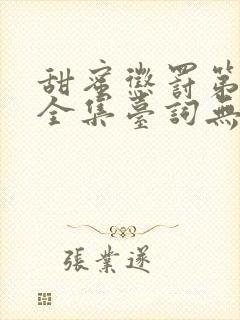 甜蜜懲罰第
全集臺詞無
張業遂